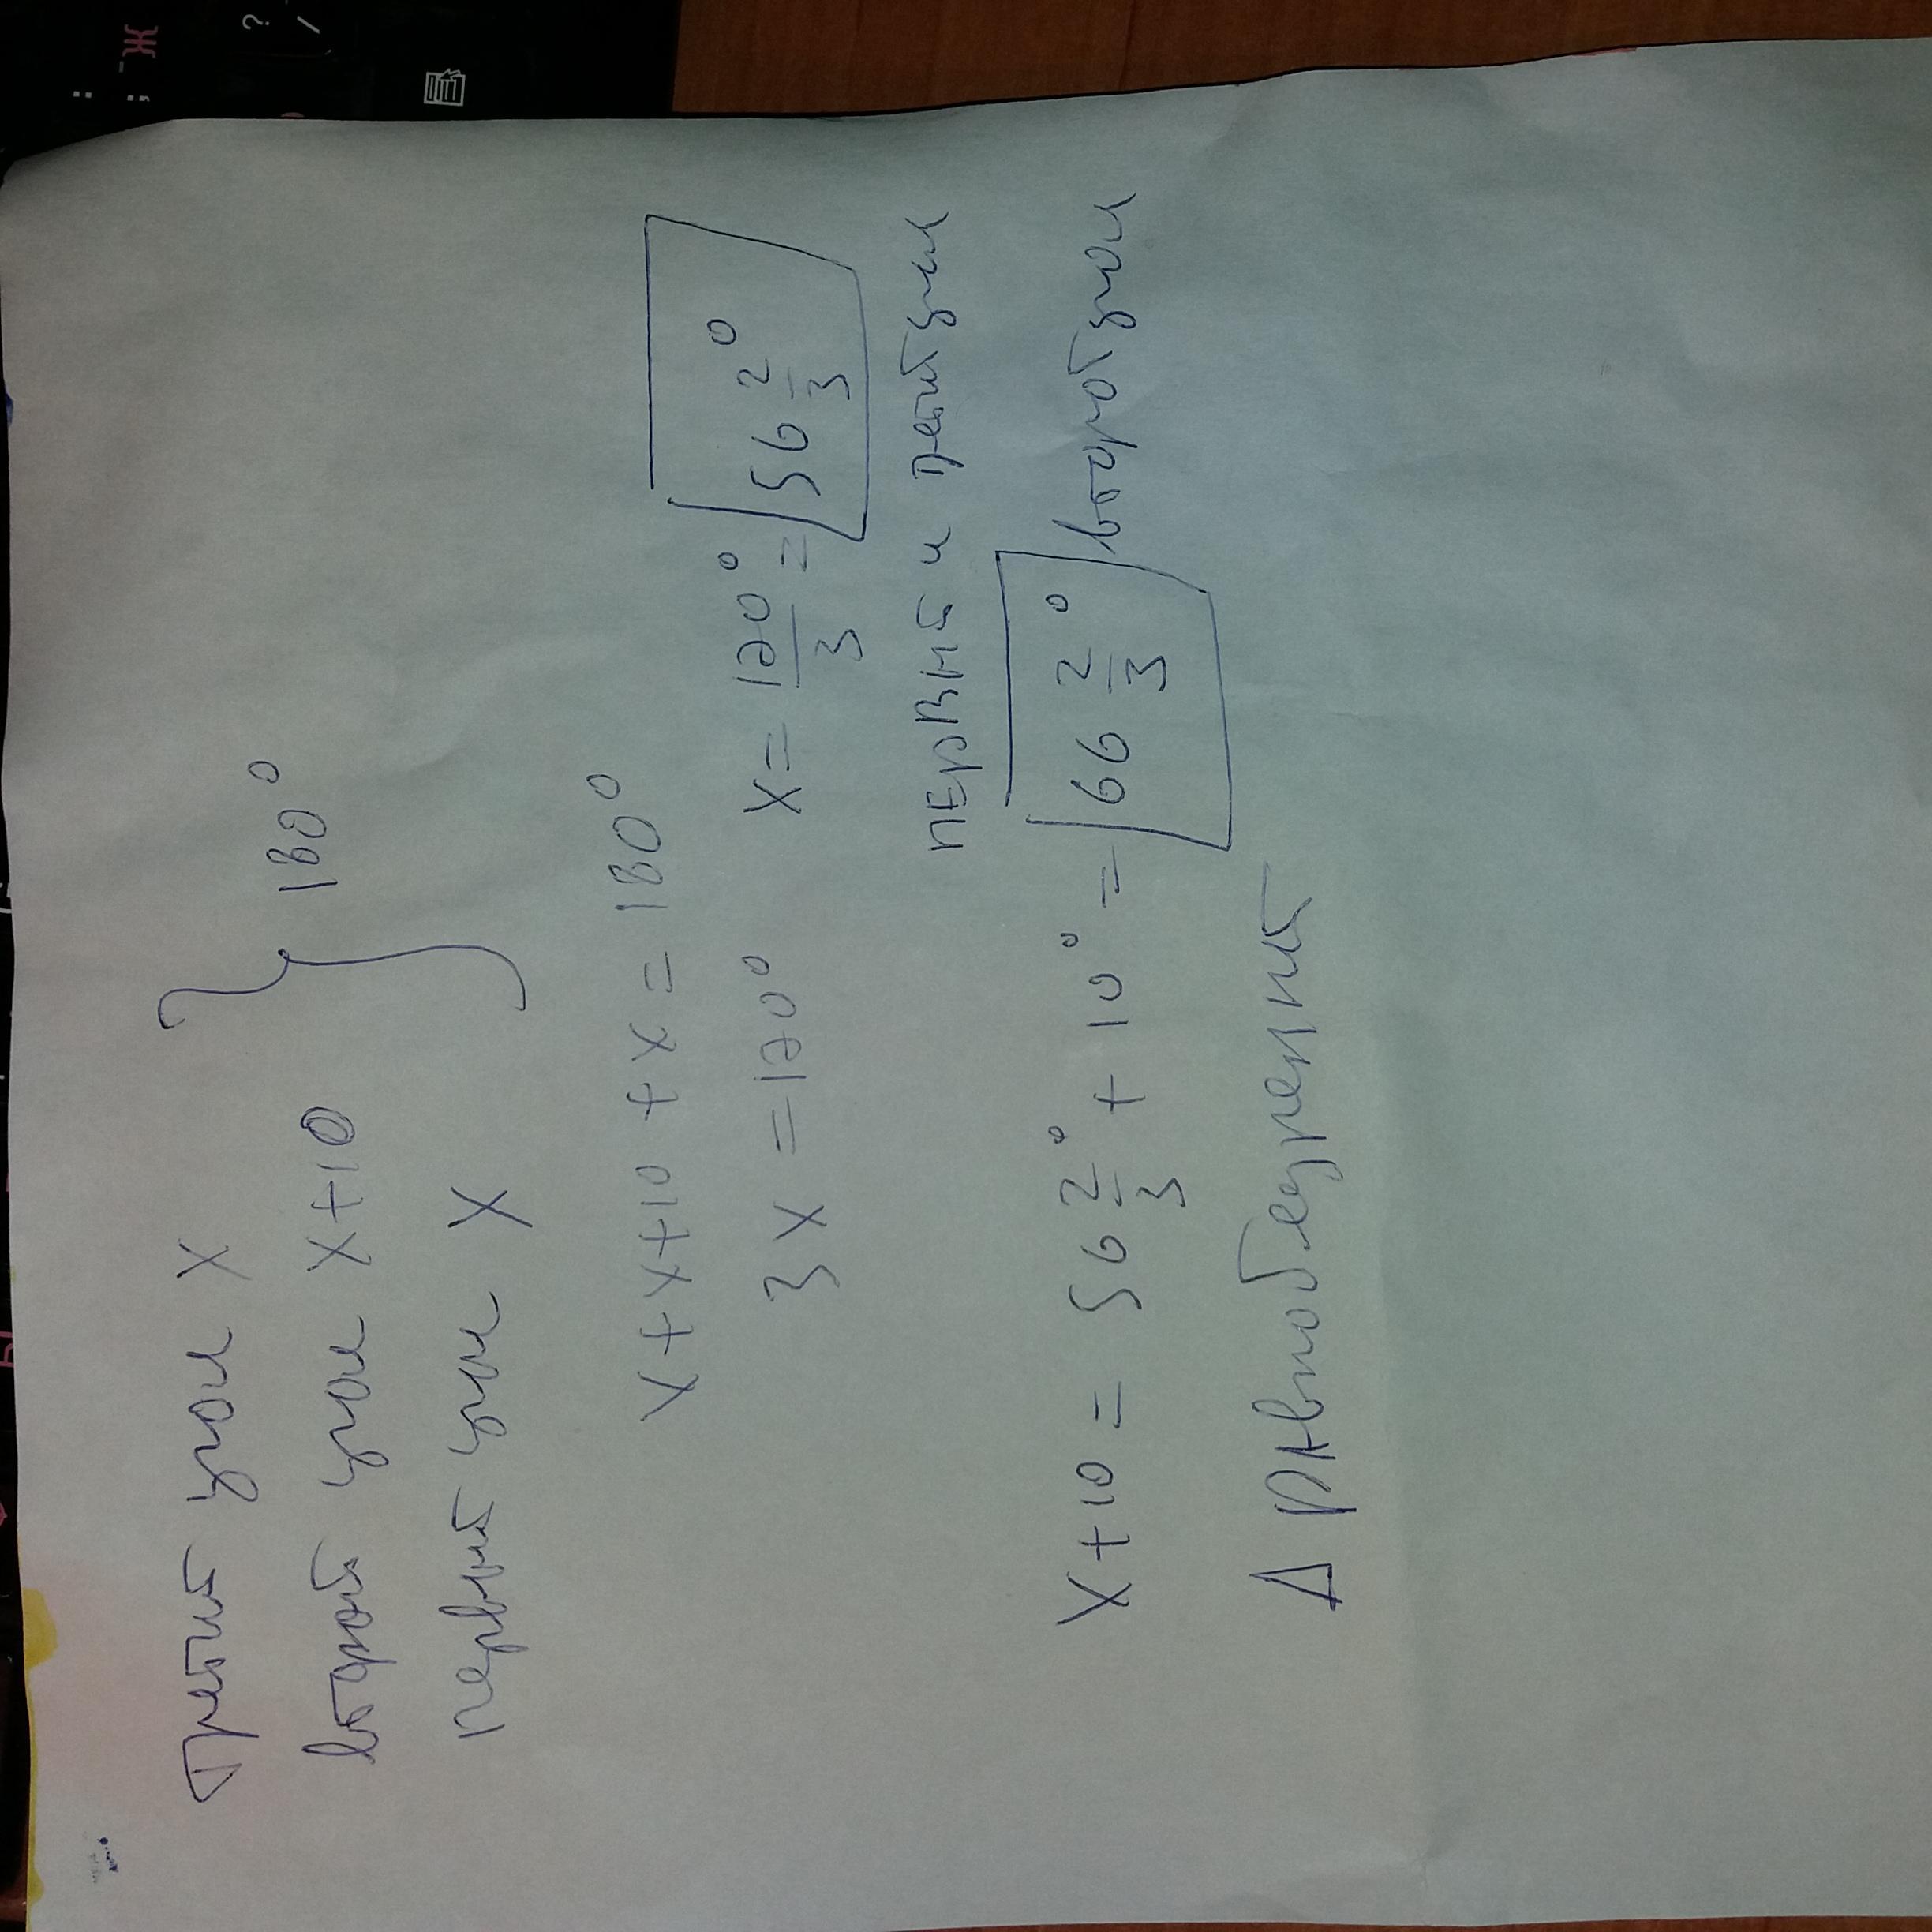 Третий угол X
второй угол X+10 } 180°
первый угол X
X+X+10 +X = 180°
3X = 170° X = 170°/3 = 56 2/3°
ПЕРВЫЙ и третий угол
X+10 = 56 2/3° + 10° = 66 2/3° второй угол
Δ равнобедренный